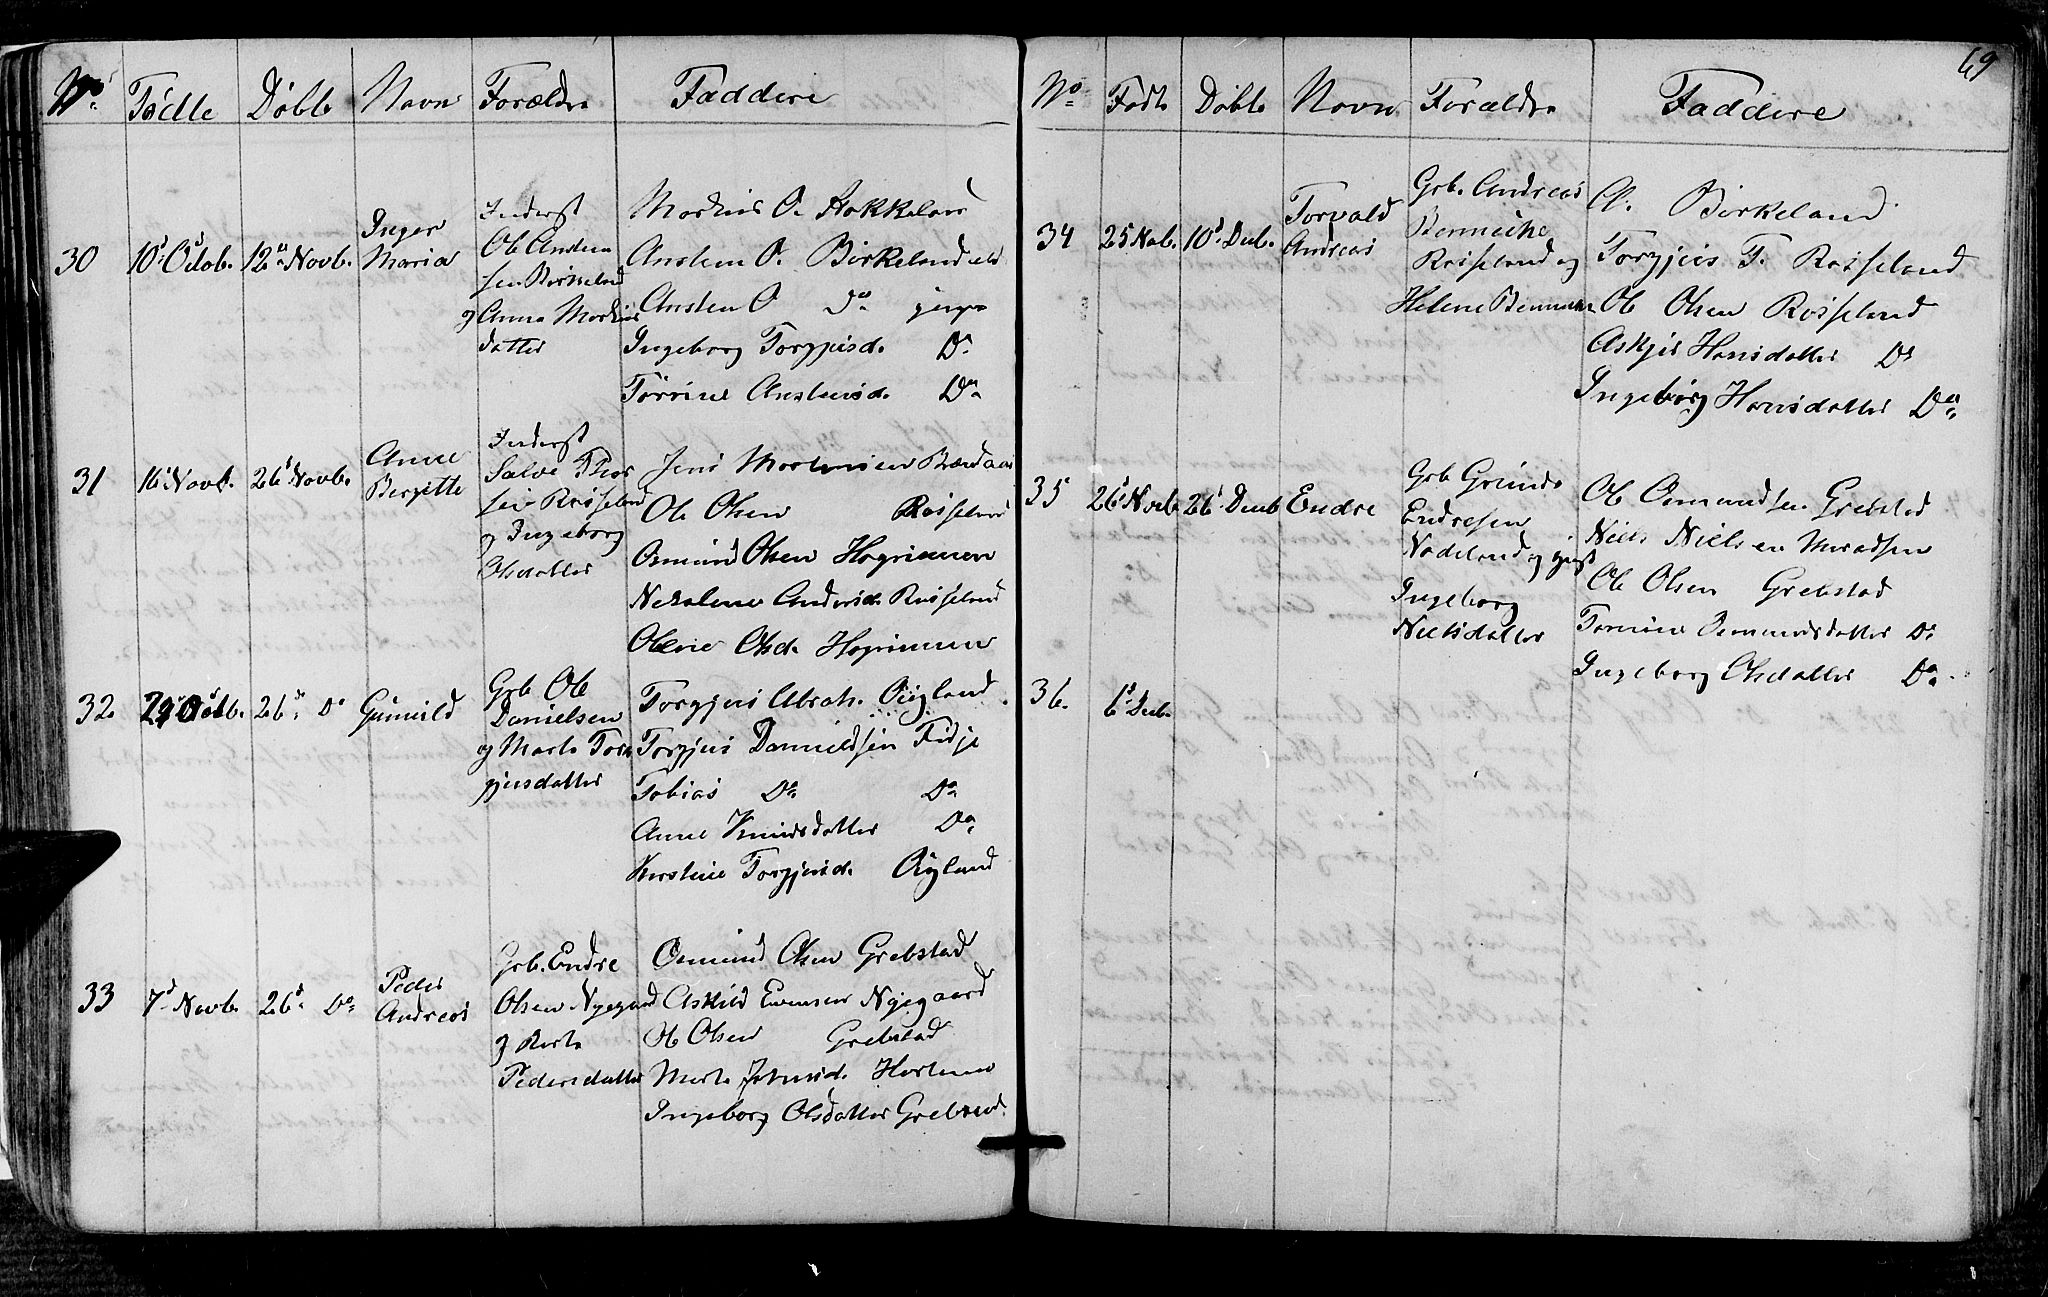 No. Fødte Døbte Navn Forældre Faddere
30 10d Octob. 12te Novb. Inger Maria
Inderst
Ole Andersen Birkeland
og Anna Markusdatter
Markus O. Hokkeland
Ansten O. Birkeland eld
Ansten O Do yngre
Ingeborg Torgjusd. Do
Torine Anstensd. Do
31 16 Novb. 26d Novb. Anne Bergitte
Inderst
Salve Thorsen Røiseland
og Ingeborg
Olsdatter
Jens Mortensen
Ole Olsen Røiseland
Osmund Olsen Hogrimmen
Andersd. Røiseland
Olene Olsd. Hogrimmen
32. 29 Octb. 26de Do Gunvild
Grb Ole
Danielsen
og Marte Torgjusdatter
Torgjus Abrah. Øigland
Torgjus Danieldsen Fidje
Tobias Do Do
Anne Knudsdatter Do
Kirstine Torgjusd. Øigland
33 7d Novb. 26d Do Peder Andreas
Grb. Endre
Olsen Nyegaard
og Berte
Pedersdatter
Osmund Olsen Grebstad
Askild Evensen Nyegaard
Ole Olsen Grebstad
Marte
Ingeborg Olsdatter Grebstad
69
No. Fødte Døbte Navn Forældre Faddere
34 25 Nob. 10d Decb. Torvald Andreas
Grb. Andreas
Benniche
Røiseland og
Helene
O. Birkeland
Torgjus T. Røiseland
Ole Olsen Røiseland
Askjer Hansdatter Do
Ingeborg Hansdatter Do
35 26d Novb. 26d Decb Endre
Grb Gunde
Endresen
Nodeland og
Ingeborg
Nielsdatter
Ole Osmundsen Grebstad
Niels Nielsen
Ole Olsen Grebstad
Tomine Osmundsdatter Do
Ingeborg Olsdatter Do
36. 6d Decb.